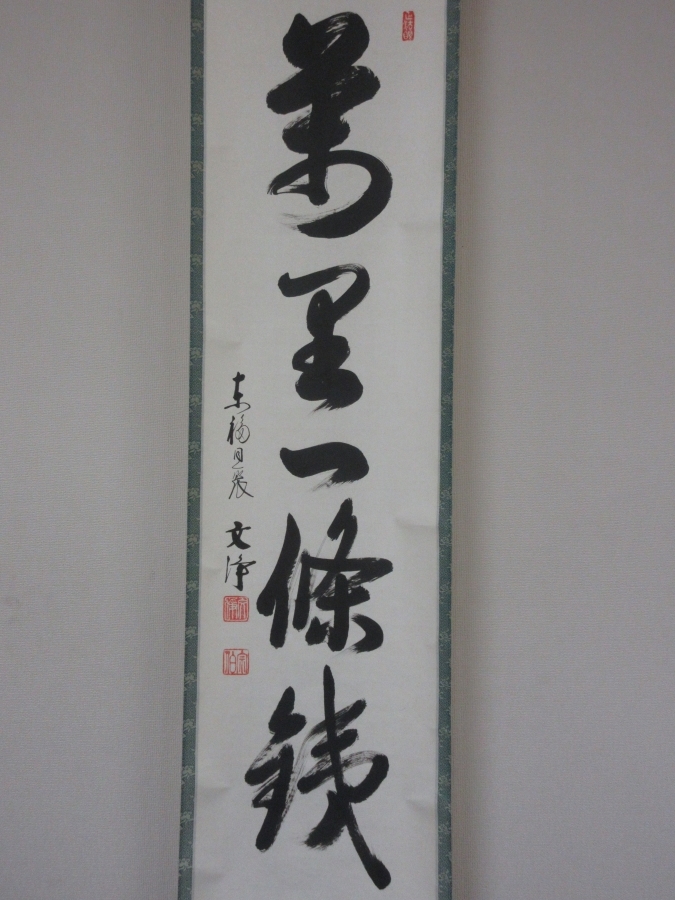 萬里一條鐵
東福
文浄